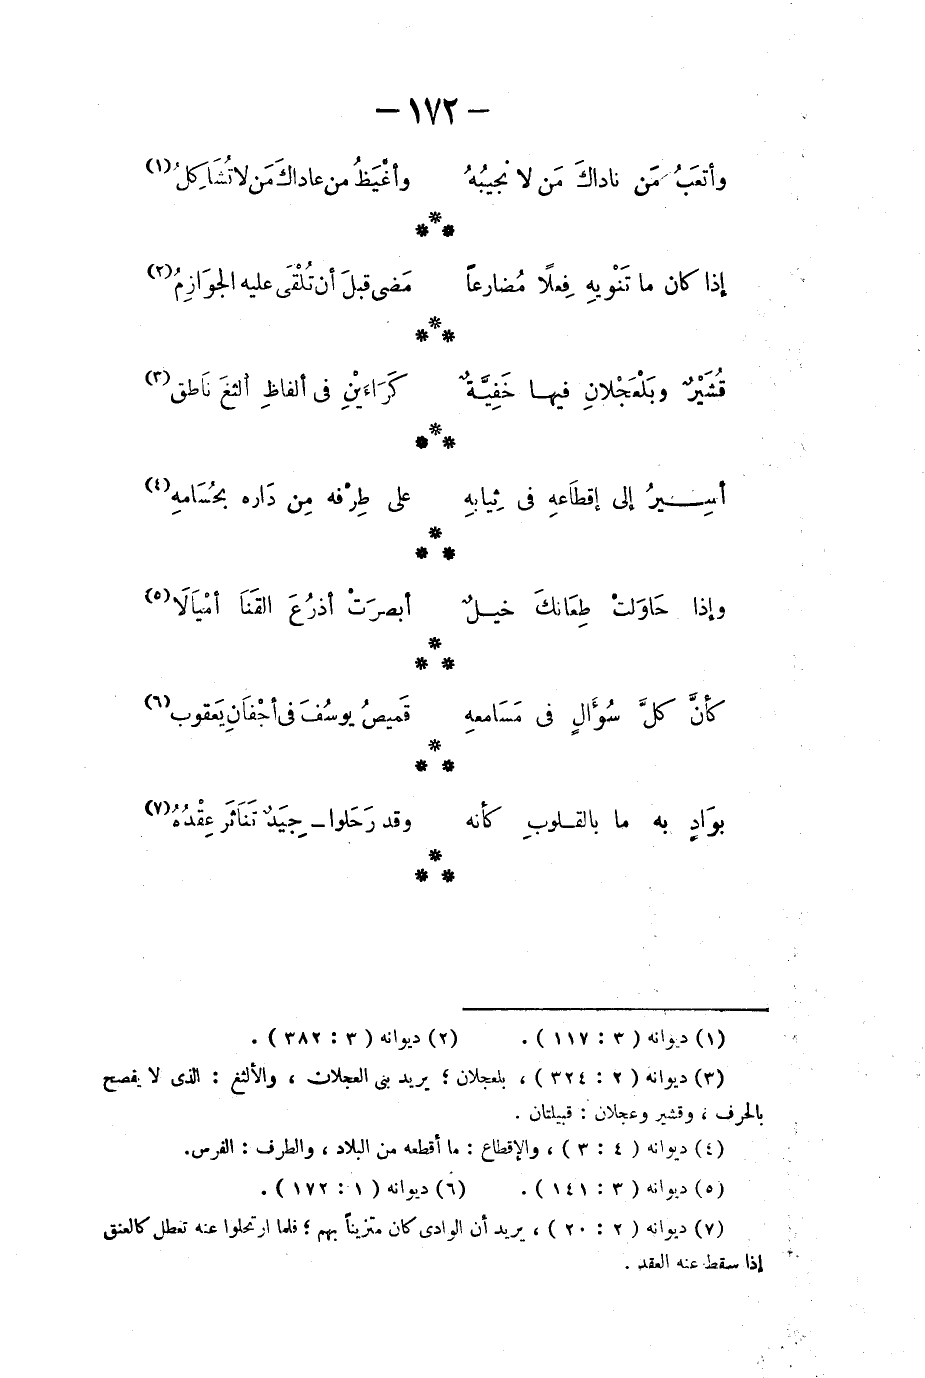 — ١٧٢ —
وأتعَبُ مَن ناداكَ مَن لا نُجيبُهُ وأغْيَظُ من عاداكَ مَن لا تُشَاكِلُ (١)
إذا كان ما تَنْويهِ فِعلًا مُضارعاً مَضى قبلَ أن تُلْقَى عليه الجوَازِمُ (٢)
قُشَيْرٌ وبَلْعَجْلانِ فيها خَفِيَّةٌ كَرَاءَيْنِ فى ألفاظِ ألثغَ نَاطق (٣)
أسِيرُ إلى إقطَاعهِ فى ثِيابهِ على طِرْفه مِن دَاره بحُسَامهِ (٤)
وإذا حَاوَلتْ طِعَانكَ خيلٌ أبصرَتْ أذرُعَ القَنَا أمْيَالَا (٥)
كأنَّ كلَّ سُوَّالٍ فى مَسَامعهِ قَميصُ يوسُفَ فى أجْفَانِ يَعقوب (٦)
بوَادٍ به ما بالقلوبِ كأنه وقد رَحَلوا ـ جِيَدٌ تَنَاثَر عِقْدُهُ (٧)
(١) ديوانه ( ٣ : ١١٧ ) . (٢) ديوانه ( ٣ : ٣٨٢ ) .
(٣) ديوانه ( ٢ : ٣٢٤ ) ، بلعجلان ؛ يريد بنى العجلان ، والألثغ : الذى لا يفصح
بالحرف ، وقشير وعجلان : قبيلتان .
(٤) ديوانه ( ٤ : ٣ ) ، والإقطاع : ما أقطعه من البلاد ، والطرف : الفرس.
(٥) ديوانه ( ٣ : ١٤١ ) . (٦) ديوانه ( ١ : ١٧٢ ) .
(٧) ديوانه ( ٢ : ٢٠ ) ، يريد أن الوادى كان متزيناً بهم ؛ فلما ارتحلوا عنه تعطل كالعنق
إذا سقط عنه العقد .